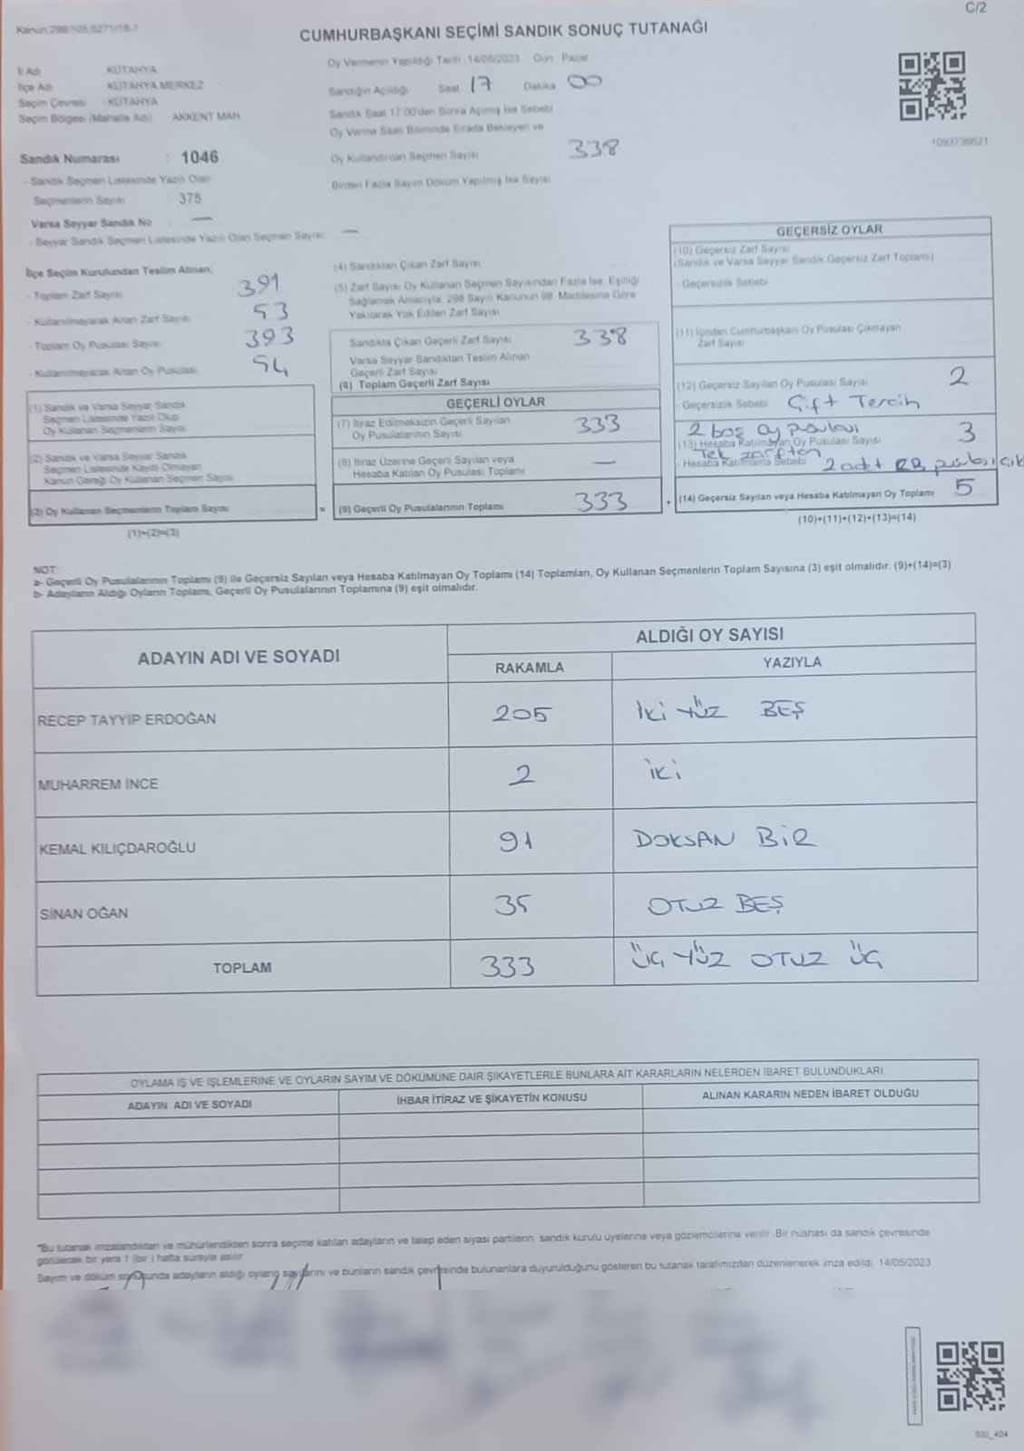 C/2
CUMHURBAŞKANI SEÇİMİ SANDIK SONUÇ TUTANAĞI
Oy Vermenin Yapıldığı Tarih : 14/05/2023 Gün : Pazar
İl Adı : KÜTAHYA
İlçe Adı : KÜTAHYA MERKEZ
Seçim Çevresi : KÜTAHYA
Seçim Bölgesi (Mahalle Adı) : AKKENT MAH
Sandığın Açıldığı Saat 17 Dakika 00
Sandık Saat 17.00'den Sonra Açılmış İse Sebebi
Oy Verme Saati Bitiminde Sırada Bekleyen ve
Oy Kullandırılan Seçmen Sayısı 338
Birden Fazla Sayım Döküm Yapılmış İse Sayısı
Sandık Numarası : 1046
- Sandık Seçmen Listesinde Yazılı Olan
Seçmenlerin Sayısı : 375
Varsa Seyyar Sandık No —
- Seyyar Sandık Seçmen Listesinde Yazılı Olan Seçmen Sayısı —
İlçe Seçim Kurulundan Teslim Alınan;
- Toplam Zarf Sayısı 391
- Kullanılmayarak Artan Zarf Sayısı 53
- Toplam Oy Pusulası Sayısı 393
- Kullanılmayarak Artan Oy Pusulası 54
(1) Sandık ve Varsa Seyyar Sandık
Seçmen Listesinde Yazılı Olup
Oy Kullanan Seçmenlerin Sayısı
(2) Sandık ve Varsa Seyyar Sandık
Seçmen Listesinde Kayıtlı Olmayan
Kanun Gereği Oy Kullanan Seçmen Sayısı
(3) Oy Kullanan Seçmenlerin Toplam Sayısı
(1)+(2)=(3)
(4) Sandıktan Çıkan Zarf Sayısı
(5) Zarf Sayısı Oy Kullanan Seçmen Sayısından Fazla İse, Eşitliği
Sağlamak Amacıyla, 298 Sayılı Kanunun 98. Maddesine Göre
Yakılarak Yok Edilen Zarf Sayısı
Sandıkta Çıkan Geçerli Zarf Sayısı 338
Varsa Seyyar Sandıktan Teslim Alınan
Geçerli Zarf Sayısı
(6) Toplam Geçerli Zarf Sayısı
GEÇERLİ OYLAR
(7) İtiraz Edilmeksizin Geçerli Sayılan
Oy Pusulalarının Sayısı 333
(8) İtiraz Üzerine Geçerli Sayılan veya
Hesaba Katılan Oy Pusulası Toplamı —
= (9) Geçerli Oy Pusulalarının Toplamı 333
GEÇERSİZ OYLAR
(10) Geçersiz Zarf Sayısı
(Sandık ve Varsa Seyyar Sandık Geçersiz Zarf Toplamı)
- Geçersizlik Sebebi
(11) İçinden Cumhurbaşkanı Oy Pusulası Çıkmayan
Zarf Sayısı
(12) Geçersiz Sayılan Oy Pusulası Sayısı 2
- Geçersizlik Sebebi Çift Tercih
2 boş oy pusulası
(13) Hesaba Katılmayan Oy Pusulası Sayısı 3
Tek zarftan
Hesaba Katılmama Sebebi 2 adet
+ (14) Geçersiz Sayılan veya Hesaba Katılmayan Oy Toplamı 5
(10)+(11)+(12)+(13)=(14)
NOT:
a- Geçerli Oy Pusulalarının Toplamı (9) ile Geçersiz Sayılan veya Hesaba Katılmayan Oy Toplamı (14) Toplamları, Oy Kullanan Seçmenlerin Toplam Sayısına (3) eşit olmalıdır. (9)+(14)=(3)
b- Adayların Aldığı Oyların Toplamı, Geçerli Oy Pusulalarının Toplamına (9) eşit olmalıdır.
ADAYIN ADI VE SOYADI
ALDIĞI OY SAYISI
RAKAMLA YAZIYLA
RECEP TAYYİP ERDOĞAN 205 İki YÜZ BEŞ
MUHARREM İNCE 2 İKİ
KEMAL KILIÇDAROĞLU 91 DOKSAN BİR
SİNAN OĞAN 35 OTUZ BEŞ
TOPLAM 333 ÜÇ YÜZ OTUZ ÜÇ
OYLAMA İŞ VE İŞLEMLERİNE VE OYLARIN SAYIM VE DÖKÜMÜNE DAİR ŞİKAYETLERLE BUNLARA AİT KARARLARIN NELERDEN İBARET BULUNDUKLARI
ADAYIN ADI VE SOYADI İHBAR İTİRAZ VE ŞİKAYETİN KONUSU ALINAN KARARIN NEDEN İBARET OLDUĞU
*Bu tutanak imzalandıktan ve mühürlendikten sonra seçime katılan adayların ve talep eden siyasi partilerin, sandık kurulu üyelerine veya gözlemcilerine verilir. Bir nüshası da sandık çevresinde
görülecek bir yere 1 (bir) hafta süreyle asılır.
Sayım ve döküm sonucunda adayların aldığı oyların sayılarını ve bunların sandık çevresinde bulunanlara duyurulduğunu gösteren bu tutanak tarafımızdan düzenlenerek imza edildi. 14/05/2023